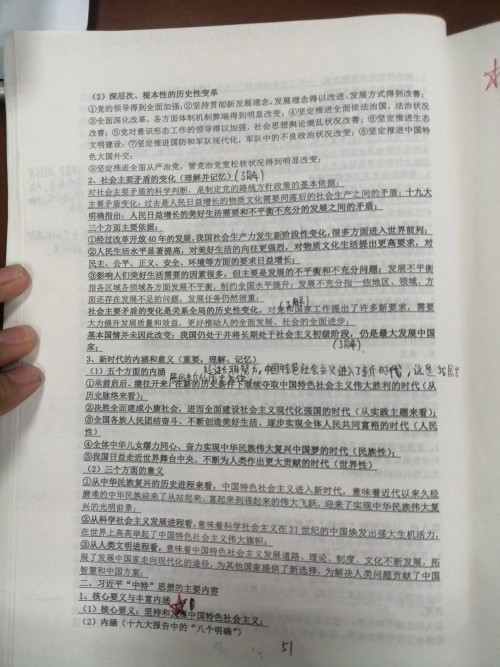 (2) 深层次、根本性的历史性变革
①党的领导得到全面加强;②坚持贯彻新发展理念,发展理念得以改进、发展方式得到改善;
③全面深化改革,各方面体制机制弊端得到明显改变;④坚定推进全面依法治国,法治状况
改善;⑤党对意识形态工作的领导得以加强,社会思想舆论混乱状况改善;⑥坚定推进生态
文明建设;⑦坚定推进国防和军队现代化,军队中的不良政治状况改变;⑧坚定推进中国特
色大国外交;
⑨坚定推进全面从严治党,管党治党宽松软状况得到明显改变;
2、社会主要矛盾的变化(理解并记忆)(了解)
对社会主要矛盾的科学判断,是制定党的路线方针政策的基本依据;
主要矛盾变化:过去是人民日益增长的物质文化需要同落后的社会生产之间的矛盾;十九大
明确指出:人民日益增长的美好生活需要和不平衡不充分的发展之间的矛盾;
三个方面主要依据:
①经过改革开放 40 年的发展,我国社会生产力发生新阶段性变化,很多方面进入世界前列;
②人民生活水平显著提高,对美好生活的向往更强烈,对物质文化生活提出更高要求,对
民主、公平、正义、安全、环境等方面的要求日益增长;
③影响人们美好生活需要的因素很多,但主要是发展的不平衡和不充分问题;发展不平衡
指各区域各领域各方面发展不平衡,制约全国水平提升;发展不充分指一些地区、领域、方
面还存在发展不足的问题,发展任务仍然很重;
(了解)
社会主要矛盾的变化是关系全局的历史性变化,对党和国家工作提出了许多新要求,需要
大力提升发展质量和效益,更好推动人的全面发展、社会的全面进步;
基本国情并未因此改变:我国仍处于并将长期处于社会主义初级阶段,仍是最大发展中国
家;(了解)
3、新时代的内涵和意义(重要,理解、记忆)
(1)五个方面的内涵 经过长期努力,中国特色社会主义进入了新时代,这是我国
①承前启后、继往开来,在新的历史条件下继续夺取中国特色社会主义伟大胜利的时代(从
历史脉络来看);
②决胜全面建成小康社会,进而全面建设社会主义现代化强国的时代(从实践主题来看);
③全国各族人民团结奋斗、不断创造美好生活、逐步实现全体人民共同富裕的时代(人民
性)
④全体中华儿女勠力同心、奋力实现中华民族伟大复兴中国梦的时代(民族性);
⑤我国日益走近世界舞台中央、不断为人类作出更大贡献的时代(世界性)
(二)三个方面的意义
①从中华民族复兴的历史进程来看:中国特色社会主义进入新时代,意味着近代以来久经
磨难的中华民族迎来了从站起来、富起来到强起来的伟大飞跃,迎来了实现中华民族伟大复
兴的光明前景;
②从科学社会主义发展进程看,意味着科学社会主义在 21 世纪的中国焕发出强大生机活力,
在世界上高高举起了中国特色社会主义伟大旗帜;
③从人类文明进程看,意味着中国特色社会主义发展道路、理论、制度、文化不断发展,拓
展了发展中国家走向现代化的途径,为其他国家提供了新选择,为解决人类问题贡献了中国
智慧和中国方案;
二、习近平“中特”思想的主要内容
1、核心要义与丰富内涵
(1)核心要义:坚持和发展中国特色社会主义;
(2)内涵(十九大报告中的“八个明确”)
51